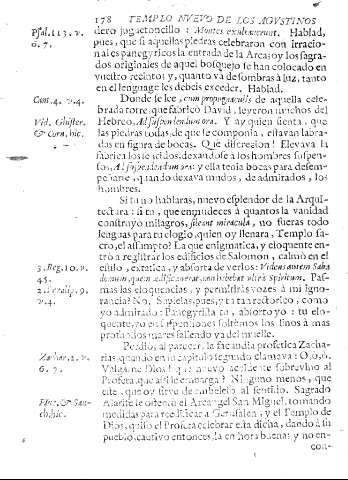 178 TEMPLO NUEVO DE LOS AGUSTINOS
Psal. 113. v. 6. 7.
dero jugaetoncillo: Montes exultaverunt. Hablad,
pues, que si aquellas piedras celebraron con irracio-
nales panegyricos la entrada de la Arca; oy los sagra-
dos originales de aquel bosquejo se han colocado en
vuestro recinto; y, quanto và de sombras à luz, tanto
en el lenguage les debeis exceder. Hablad.
Cant. 4. v. 4.
Donde se lee, cum propugnaculis de aquella cele-
brada torre, que fabricò David, leyeron muchos del
Vid. Ghisler. & Corn. hic.
Hebreo, Ad suspendendum ora. Y ay quien sienta, que
las piedras todas, de que se componia, estavan labra-
das en figura de bocas. Què discrecion! Elevava la
fabrica los sentidos, dexandose à los hombres suspen-
sos, Ad suspendendum ora: y ella tenia bocas para desem-
peñarse, quando dexava mudos, de admirados, los
hombres.
Si tu no hablaras, nuevo esplendor de la Arqui-
tectura: si tu, que enmudeces à quantos la vanidad
construyò milagros, sileant miracula, no fueras todo
lenguas para tu elogio, quien oy llenara, Templo sa-
cro, el assumpto? La que enigmatica, y eloquente en-
trò a registrar los edificios de Salomon, calmò en el
3. Reg. 10. v. 4 5.
estilo, extatica, y absorta de verlos: Videns autem Saba
domum, quam ædificaverat, non habebat ultrà spiritum. Pas-
2. Paralip. 9. v. 4.
mas las eloquencias, y permitiràs vozes à mi igno-
rancia? No, Sapielas, pues, y tu tan rectorico, como
yo admirado: Panegyriza tu, absorto yo: tu elo-
quente, yo en suspensiones soltèmos los linos à mas
profundos mares saliendo ya del muelle.
Perdiò, al parecer, la facundia profetica Zacha-
Zachar. 2. v. 6. 7.
rias, quando en su capitulo segundo clamava: O, ò, ò.
Valgame Dios! què nuevo accidente sobrevino al
Profeta, que assi le embarga? Ninguno menos, que
este, que oy sirve de embeleso al sentido. Sagrado
& Sanch. hic.
Alarife se ostentò el Arcangel San Miguel, tomando
medidas para reedificar à Gerusalen, y el Templo de
Dios, quiso el Profeta celebrar esta dicha, dando à su
pueblo, cautivo entonces, la en hora buena: y no en-
con-